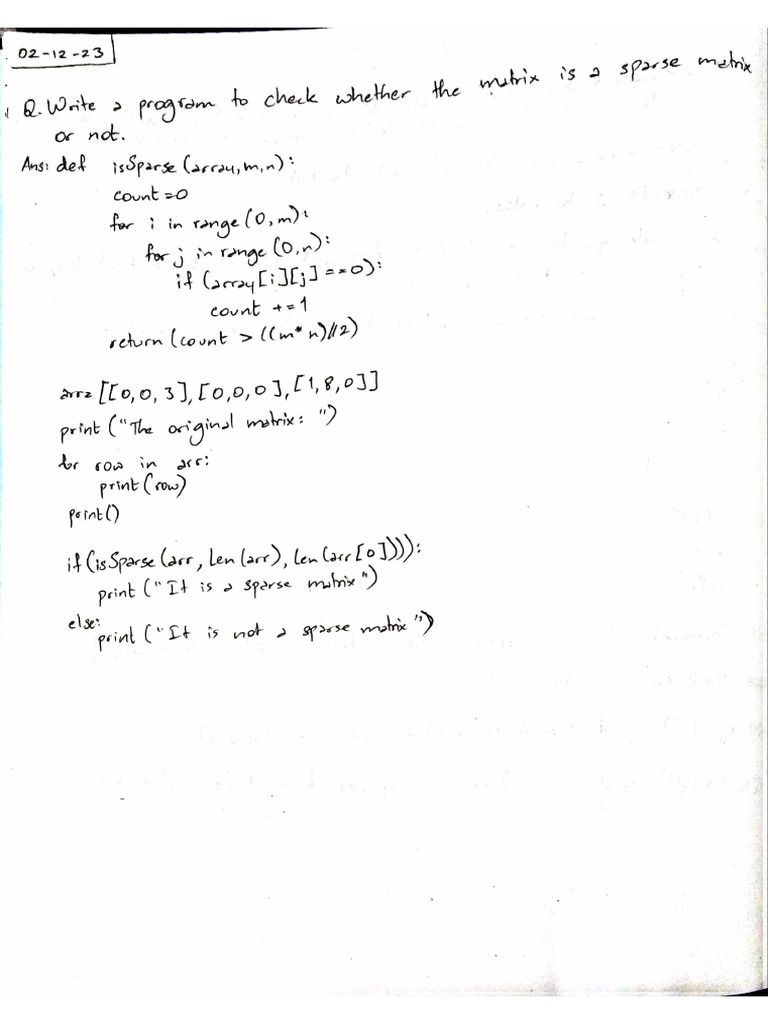 02-12-23
Q. Write a program to check whether the matrix is a sparse matrix
or not.
Ans: def isSparse(array,m,n):
count=0
for i in range(0,m):
for j in range(0,n):
if (array[i][j]==0):
count +=1
return (count > ((m*n)//2)
arr=[[0,0,3],[0,0,0],[1,8,0]]
print ("The original matrix: ")
for row in arr:
print(row)
print()
if(isSparse(arr, len(arr), len(arr[0]))):
print ("It is a sparse matrix")
else:
print ("It is not a sparse matrix")